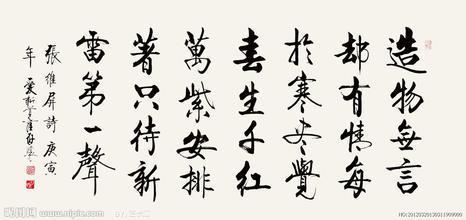 造物無言
却有情每
於寒尽覺
春生千紅
萬紫安排
著只待新
雷第一聲
張維屏詩庚寅
年
昵图网 www.nipic.com